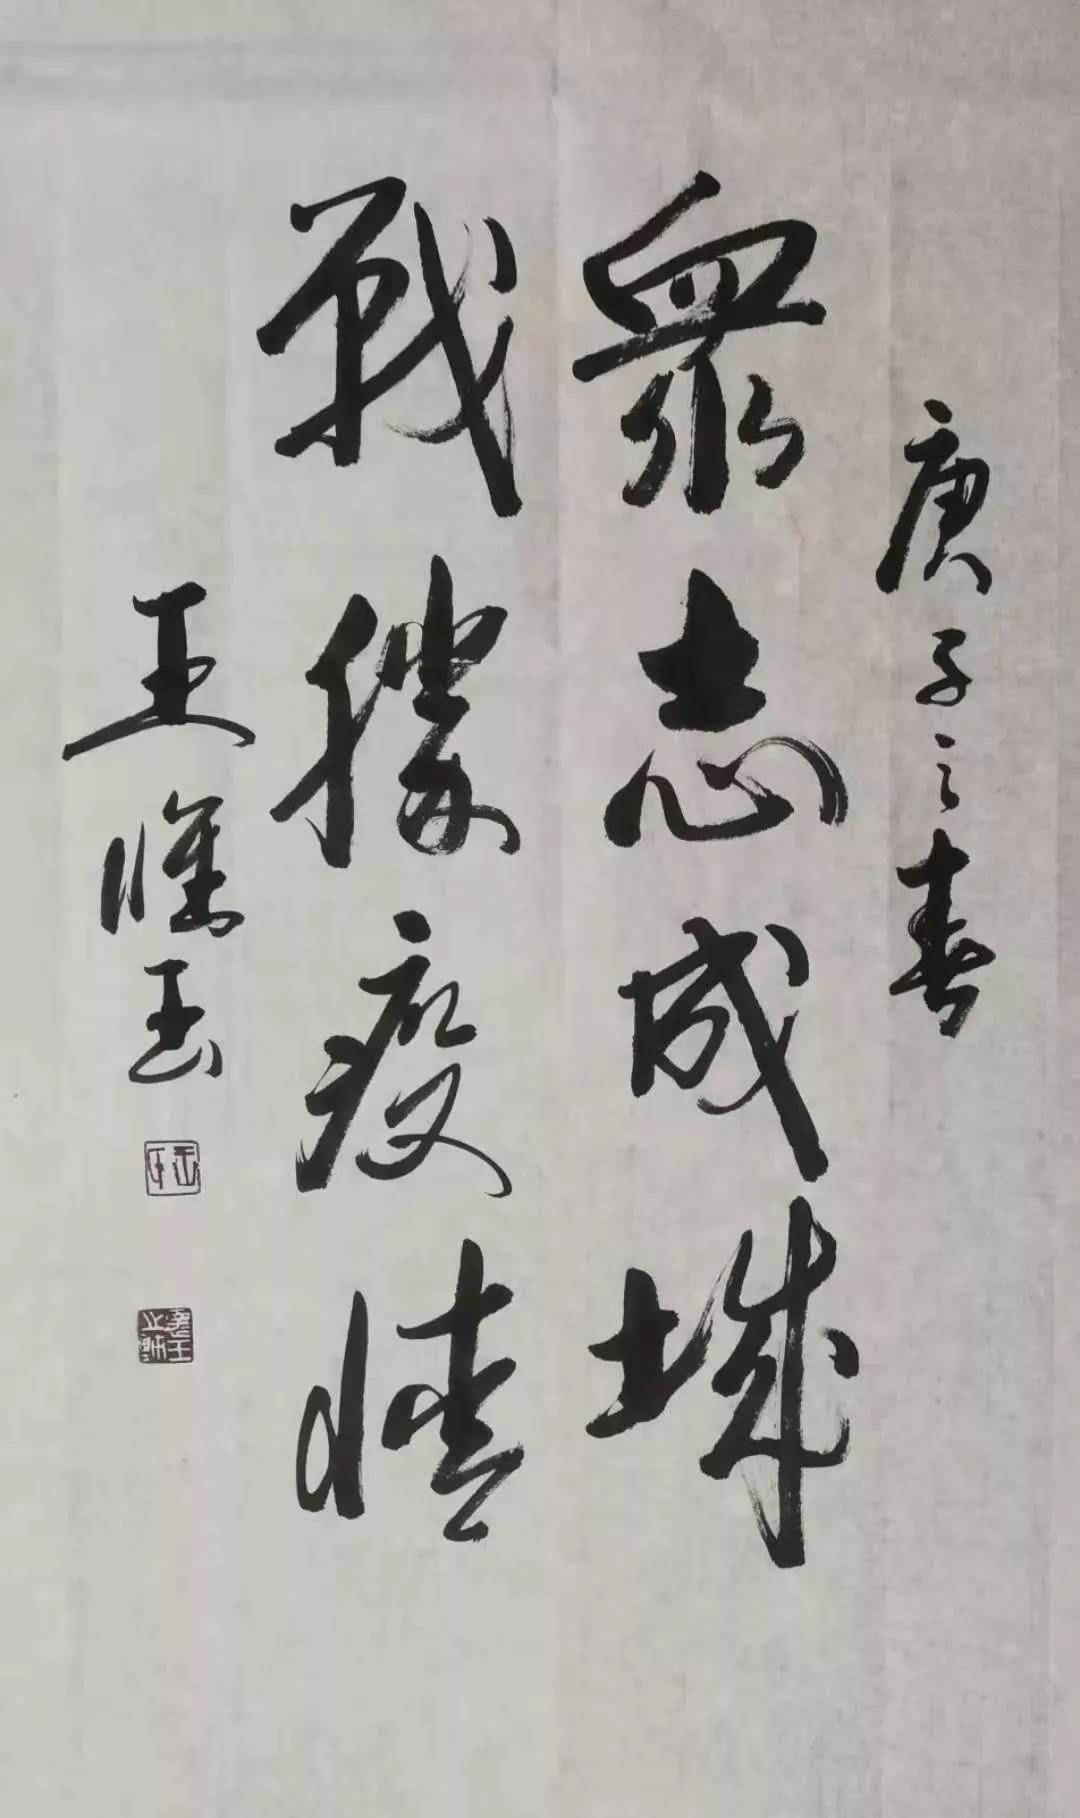 庚子之春
眾志成城
戰勝疫情
王惟玉